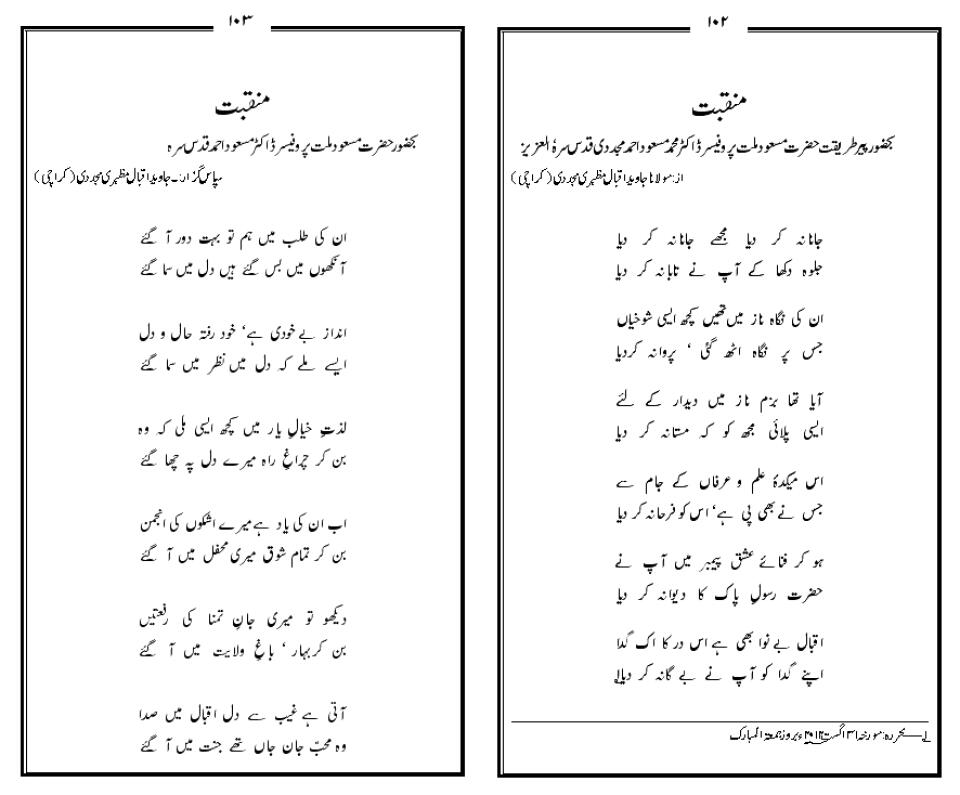 ۱۰۲
منقبت
بحضور پیر طریقت حضرت مسعود ملت پروفیسر ڈاکٹر محمد مسعود احمد مجددی قدس سرہٗ العزیز
از: مولانا جاوید اقبال مظہری مجددی (کراچی)
جانانہ کر دیا مجھے جانانہ کر دیا
جلوہ دکھا کے آپ نے تابانہ کر دیا
ان کی نگاہ ناز میں تھیں کچھ ایسی شوخیاں
جس پر نگاہ اٹھ گئی ‘ پروانہ کردیا
آیا تھا بزم ناز میں دیدار کے لئے
ایسی پلائی مجھ کو کہ مستانہ کر دیا
اس میکدۂ علم و عرفاں کے جام سے
جس نے بھی پی ہے‘ اس کو فرحانہ کر دیا
ہو کر فنائے عشق پیمبر میں آپ نے
حضرت رسولِ پاک کا دیوانہ کر دیا
اقبال بے نوا بھی ہے اس در کا اک گدا
اپنے گدا کو آپ نے بے گانہ کر دیا۱؎
۱؎ —— بحررہ: مورخہ ۳۱ اگست ۲۰۱۲ء بروز جمعۃ المبارک
۱۰۳
منقبت
بحضور حضرت مسعود ملت پروفیسر ڈاکٹر مسعود احمد قدس سرہ
سپاس گزار:۔ جاوید اقبال مظہری مجددی (کراچی)
ان کی طلب میں ہم تو بہت دور آ گئے
آنکھوں میں بس گئے ہیں دل میں سما گئے
انداز بے خودی ہے‘ خود رفتہ حال و دل
ایسے ملے کہ دل میں نظر میں سما گئے
لذتِ خیالِ یار میں کچھ ایسی ملی کہ وہ
بن کر چراغِ راہ میرے دل پہ چھا گئے
اب ان کی یاد ہے میرے اشکوں کی انجمن
بن کر تمام شوق میری محفل میں آ گئے
دیکھو تو میری جانِ تمنا کی رفعتیں
بن کر بہار ‘ باغِ ولایت میں آ گئے
آتی ہے غیب سے دل اقبال میں صدا
وہ محبّ جان جاں تھے جنت میں آ گئے